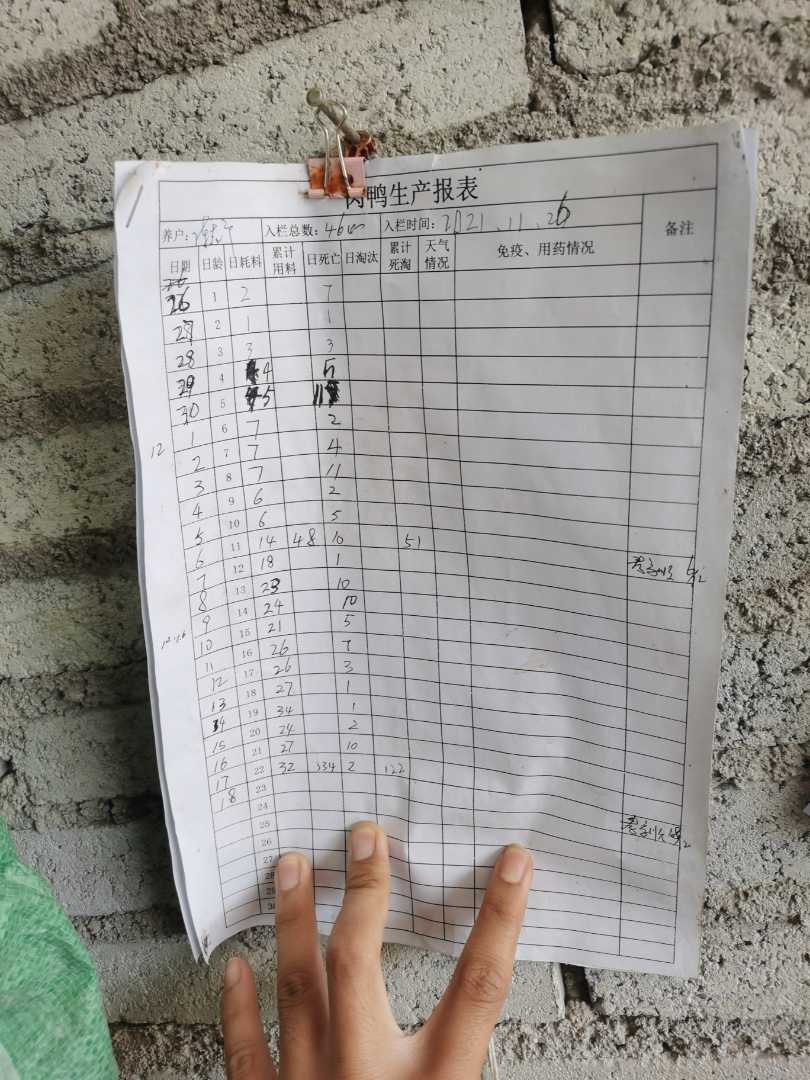 肉鸭生产报表
养户: 入栏总数: 4600 入栏时间: 2021.11.26 备注
日期 日龄 日耗料 累计用料 日死亡 日淘汰 累计死淘 天气情况 免疫、用药情况
26 1 2 7
27 2 1 1
28 3 3 3
29 4 4 5
30 5 5
12 1 6 7 2
2 7 7 4
3 8 7 11
4 9 6 2
5 10 6 5
6 11 14 48 10 51
7 12 18 1
8 13 23 10
9 14 24 10
10 15 21 5
11 16 26 7
12 17 26 3
13 18 27 1
14 19 34 1
15 20 24 2
16 21 27 10
17 22 32 334 2 122
18 23
24
25
26
27
28
29